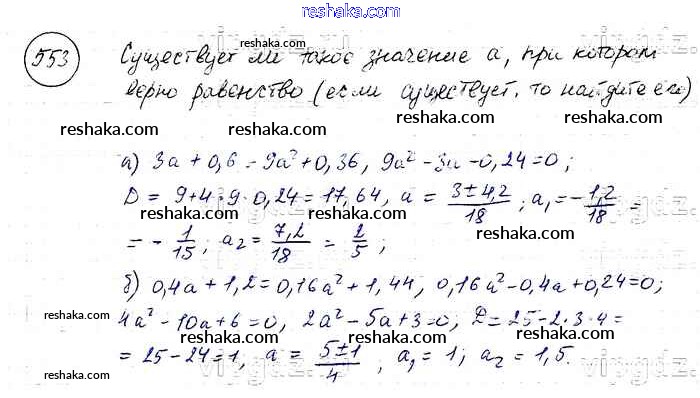 reshaka.com
553 Существует ли такое значение а, при котором
верно равенство (если существует, то найдите его)
reshaka.com reshaka.com reshaka.com
а) 3a + 0,6 = 9a² + 0,36, 9a² - 3a - 0,24 = 0;
D = 9 + 4 · 9 · 0,24 = 17,64, a = (3 ± 4,2)/18; a₁ = - 1,2/18 =
= - 1/15; a₂ = 7,2/18 = 2/5;
reshaka.com reshaka.com reshaka.com
б) 0,4a + 1,2 = 0,16a² + 1,44, 0,16a² - 0,4a + 0,24 = 0;
4a² - 10a + 6 = 0, 2a² - 5a + 3 = 0; D = 25 - 2 · 3 · 4 =
= 25 - 24 = 1, a = (5 ± 1)/4, a₁ = 1; a₂ = 1,5.
reshaka.com reshaka.com reshaka.com